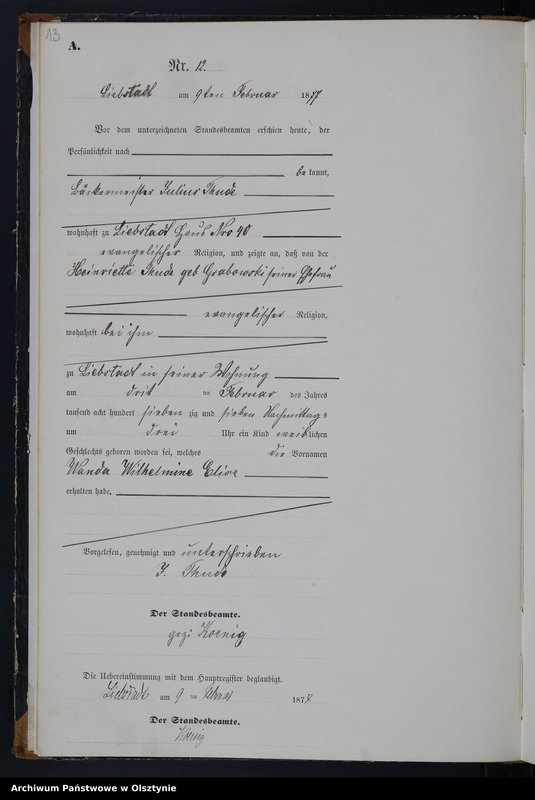 13
A.
Nr. 12.
Liebstadt am 9ten Februar 1877
Vor dem unterzeichneten Standesbeamten erschien heute, der
Persönlichkeit nach
bekannt,
Bäckermeister Julius Thude
wohnhaft zu Liebstadt Haus Nro 40
evangelischer Religion, und zeigte an, daß von der
Heinriette Thude geb Grabowski seiner Ehefrau
evangelischer Religion,
wohnhaft bei ihm
zu Liebstadt in seiner Wohnung
am drit ten Februar des Jahres
tausend acht hundert sieben zig und sieben Nachmittags
um drei Uhr ein Kind weiblichen
Geschlechts geboren worden sei, welches die Vornamen
Wanda Wilhelmine
erhalten habe.
Vorgelesen, genehmigt und unterschrieben
J. Thude
Der Standesbeamte.
gez: Koenig
Die Uebereinstimmung mit dem Hauptregister beglaubigt.
Liebstadt am 9 ten Februar 1877
Der Standesbeamte.
Koenig
Archiwum Państwowe w Olsztynie